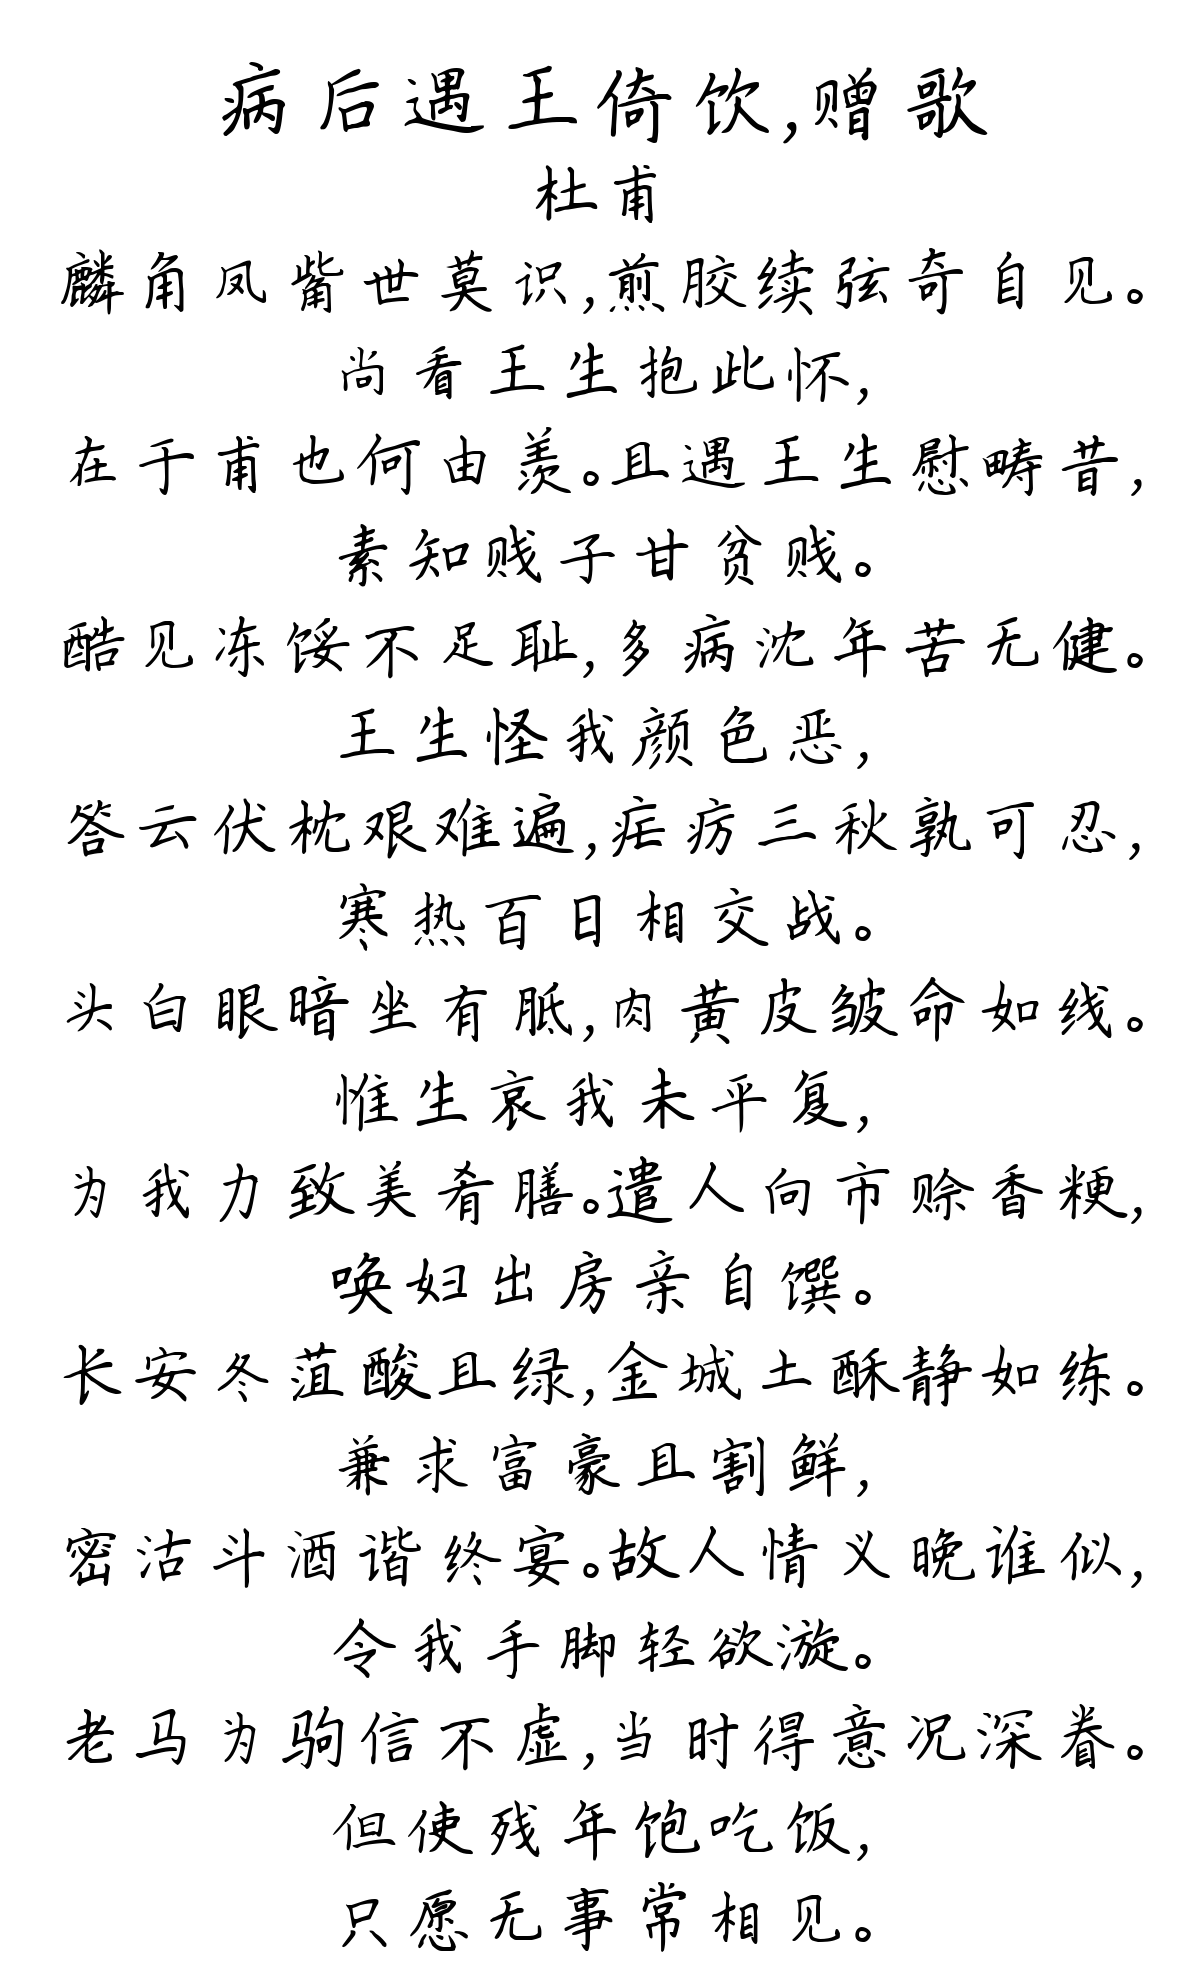 病后遇王倚饮,赠歌
杜甫
麟角凤觜世莫识,煎胶续弦奇自见。
尚看王生抱此怀,
在于甫也何由羡。且遇王生慰畴昔,
素知贱子甘贫贱。
酷见冻馁不足耻,多病沈年苦无健。
王生怪我颜色恶,
答云伏枕艰难遍,疟疠三秋孰可忍,
寒热百日相交战。
头白眼暗坐有胝,肉黄皮皱命如线。
惟生哀我未平复,
为我力致美肴膳。遣人向市赊香粳,
唤妇出房亲自馔。
长安冬菹酸且绿,金城土酥静如练。
兼求富豪且割鲜,
密沽斗酒谐终宴。故人情义晚谁似,
令我手脚轻欲漩。
老马为驹信不虚,当时得意况深眷。
但使残年饱吃饭,
只愿无事常相见。